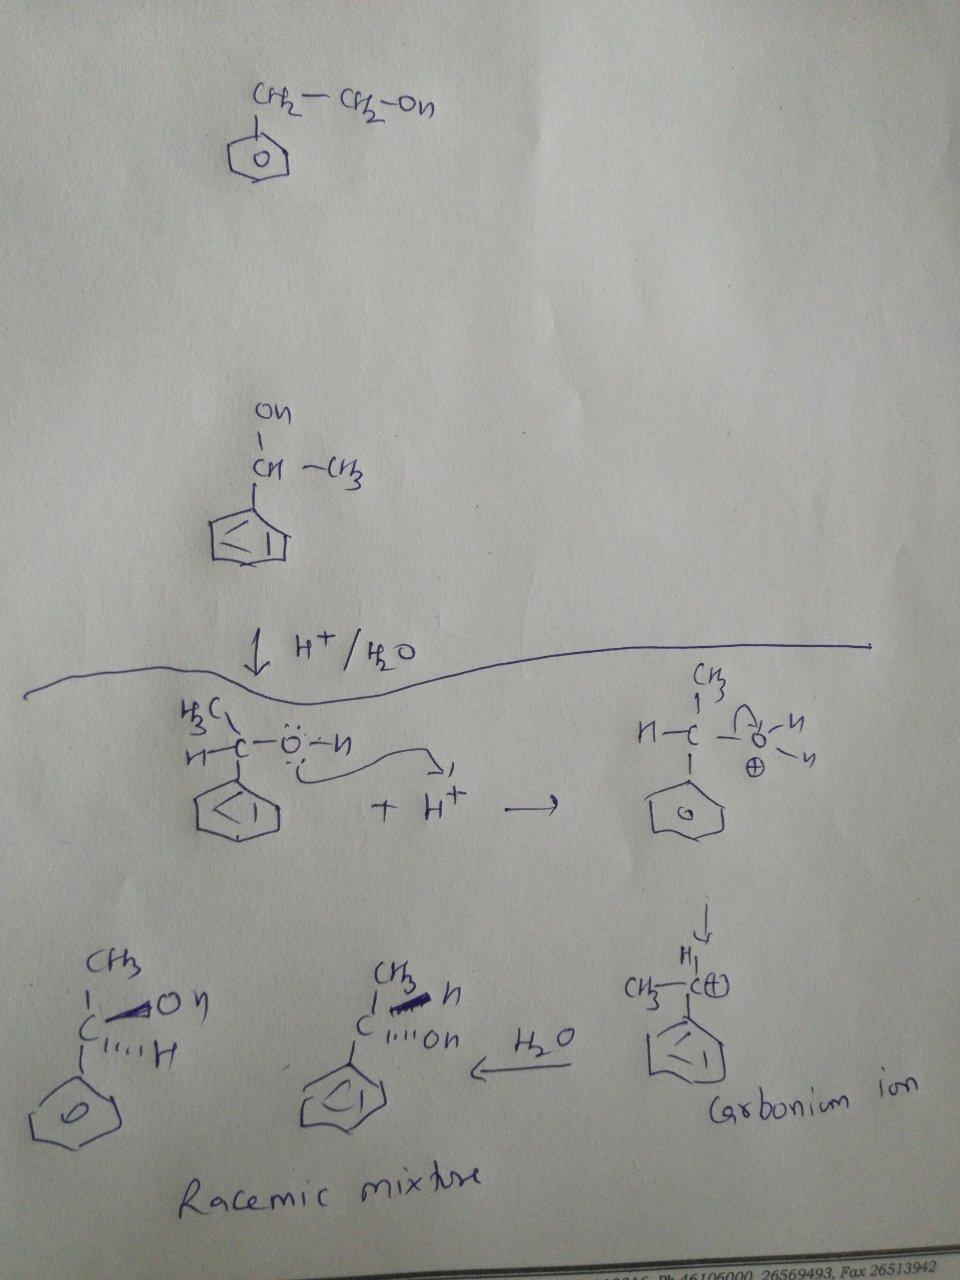 CH2 — CH2 - OH
OH
CH - CH3
H+ / H2O
H3C
H - C - O - H
+ H+ →
CH3
H - C - O - H
H
⊕
H
CH3 - C ⊕
Carbonium ion
H2O
CH3
C H
OH
CH3
C OH
H
Racemic mixture
Ph 46106000, 26569493, Fax 26513942